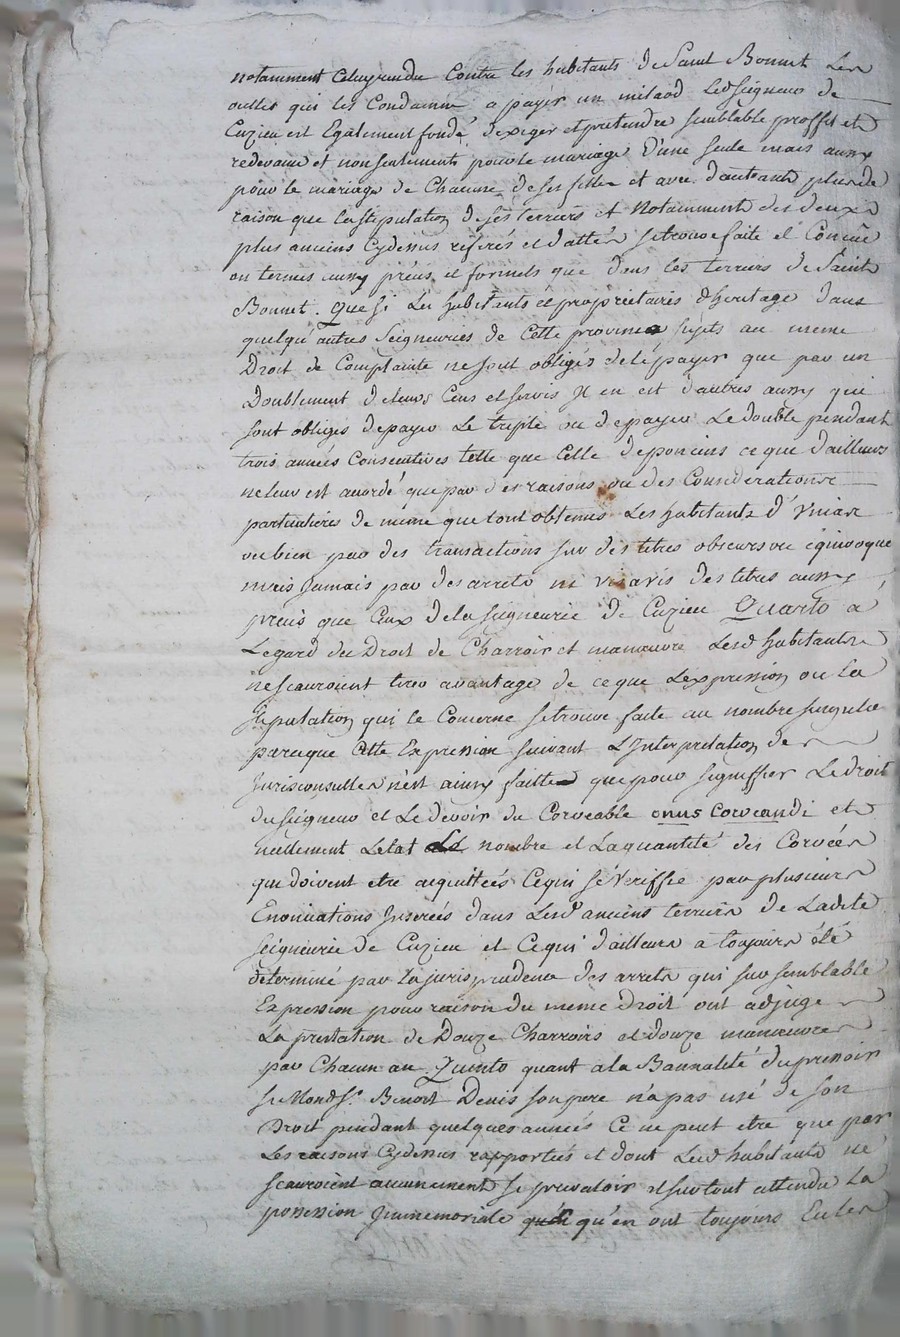 notamment Celuy rendu Contre les habitants de Saint Bonnet Les
oulles qui les Condamne a payer un milaod Led seigneur de
Cuzieu est Egalement fondé d'exiger et pretendre semblable proffit et
redevance et non seulement pour le mariage D'une seule mais aussy
pour le mariage de Chacune de ses filles et avec d'autant plus de
raison que la stipulation de ses terriers et Notamment des deux
plus anciens Cydessus referés et dattés se trouve faite et Concüe
en termes aussy précis et formels que dans les terriers de Saint
Bonnet. Que si Les habitants et proprietaires d'heritage dans
quelqu'autres Seigneuries de Cette province sujets au meme
Droit de Complainte ne sont obligés de le payer que par un
Doublement de leurs Cens et servis Il en est d'autres aussy qui
sont obligés de payer Le triple ou de payer Le double pendant
trois années Consecutives telle que Celle de poncins ce que d'ailleurs
ne leur est accordé que par des raisons ou des Considerations
particulieres de meme que l'ont obtenus Les habitants d'Uniac
ou bien par des transactions sur des titres obscurs ou equivoque
mais Jamais par des arrets ni visavis des titres aussy
précis que Ceux de la seigneurie de Cuzieu Quarto a
Legard du Droit de Charroir et manœuvre Lesd habitants
ne scauroient tirer avantage de ce que L'expression ou La
stipulation qui le Concerne se trouve faite au nombre singulier
parceque Cette Expression suivant L'Interpretation de
Jurisconsultes n'est ainsy faitte que pour signiffier Le droit
du seigneur et Le devoir du Corveable onus corveandi et
nullement L'etat nombre et La quantité des Corvées
qui doivent etre acquittées Ce qui se Veriffie par plusieurs
Enonciations Inserées dans Lesd anciens terriers de Ladite
seigneurie de Cuzieu et Ce qui d'ailleurs a toujours été
determiné par la jurisprudence des arrets qui sur semblable
Expression pour raison du meme Droit ont adjugé
La prestation de Douze Charroirs et douze manœuvres
par Chacun an Quinto quant a la Bannalité du pressoir
si Mond sr. Benoit Denis son pere n'a pas usé de son
Droit pendant quelques années Ce ne peut etre que par
Les raisons Cydessus rapportées et dont Lesd habitants ne
scauroient aucunement se prevaloir et surtout attendu La
possession Immemoriale qu'en ont toujours Eu les